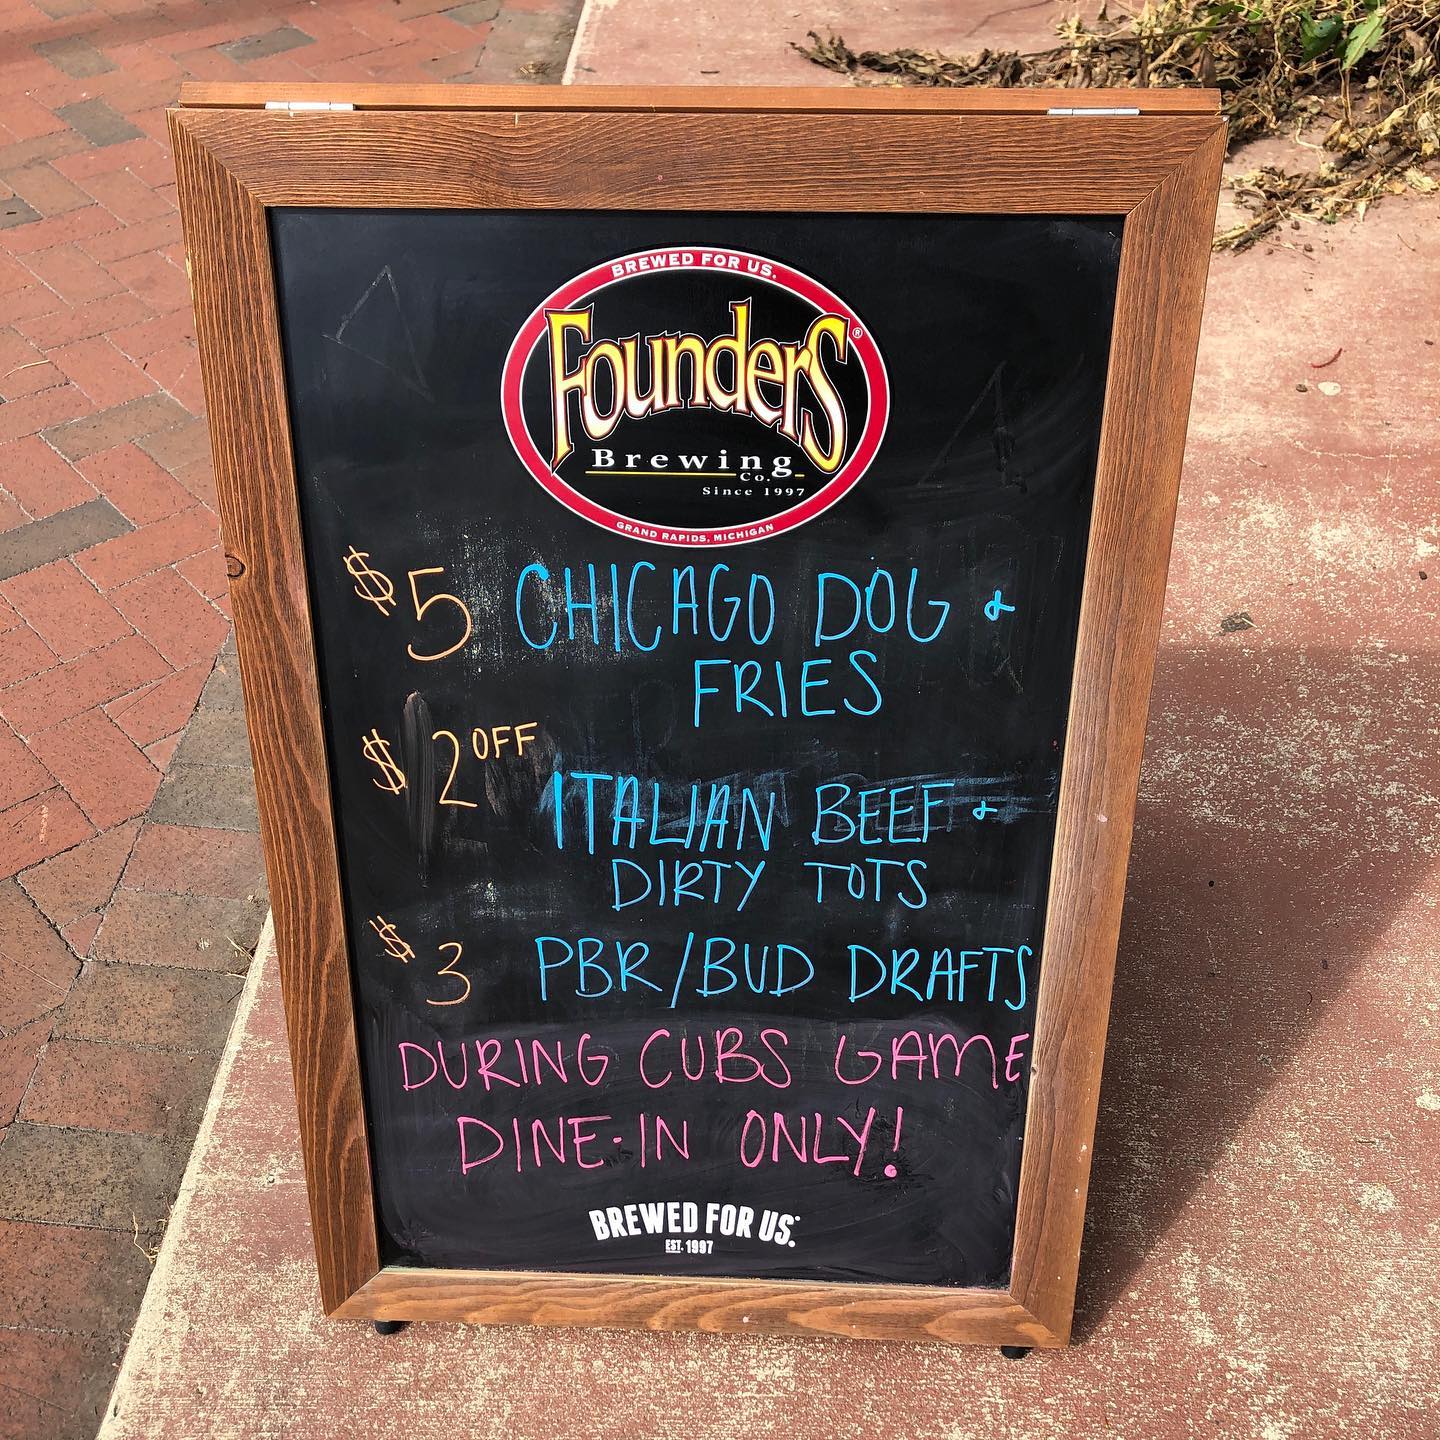 BREWED FOR US.
FounderS®
Brewing
Co.
Since 1997
GRAND RAPIDS, MICHIGAN
$5 CHICAGO DOG &
FRIES
$2 OFF ITALIAN BEEF &
DIRTY TOTS
$3 PBR/BUD DRAFTS
DURING CUBS GAME
DINE-IN ONLY!
BREWED FOR US.
EST. 1997